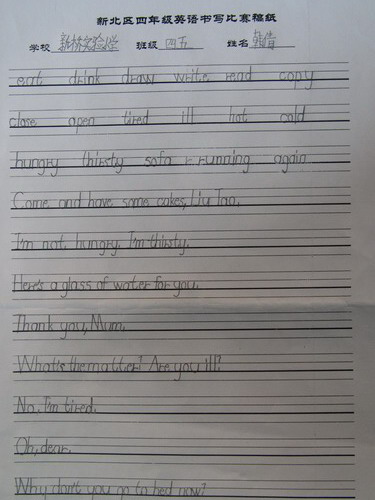 新北区四年级英语书写比赛稿纸
学校 新桥实验小学 班级 四五 姓名
eat drink draw write read copy
close open tired ill hot cold
hungry thirsty sofa r running again
Come and have some cakes, Liu Tao.
I'm not hungry. I'm thirsty.
Here's a glass of water for you.
Thank you, Mum.
What's the matter? Are you ill?
No. I'm tired.
Oh, dear.
Why don't you go to bed now?